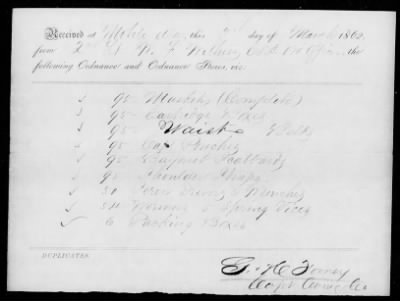 Received at Mobile Ala, this day of March 1862
from 2nd Lt the
following Ordnance and Ordnance Stores, viz:
95 Muskets (Complete)
95 Cartridge Boxes
95 Waist Belts
95 Cap Pouches
95 Bayonet Scabbards
95 Shoulder Straps
Screw Drivers & Wrenches
Wormers & Spring Vices
6 Packing Boxes
DUPLICATES.
G. H. Forney
Capt